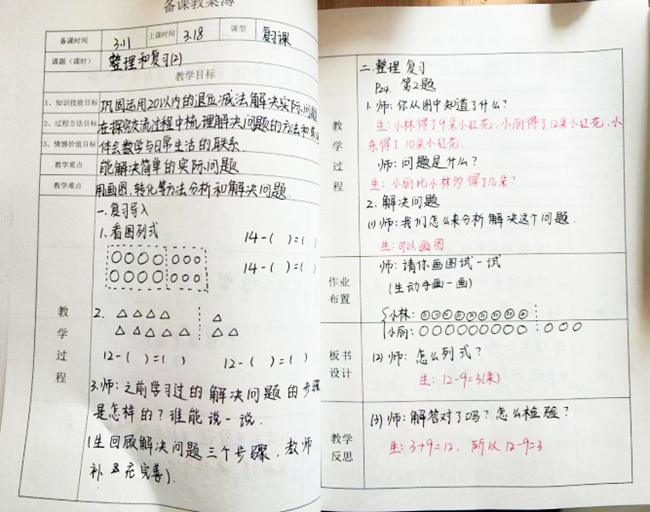 备课教案簿
备课时间 3.11 上课时间 3.18 课型 复习课
课题(课时) 整理和复习(2)
教学目标
1、知识技能目标 巩固运用20以内的退位减法解决实际问题
2、过程方法目标 在探究交流过程中梳理解决问题的方法和
3、情感价值目标 体会数学与日常生活的联系.
教学重点 能解决简单的实际问题
教学难点 用画图、转化等方法分析和解决问题
教学过程
一.复习导入
1.看图列式
14-( )=( )
14-( )=( )
2.
12-( )=( ) 12-( )=( )
3.师:之前学习过的解决问题的步骤
是怎样的?谁能说一说.
(生回顾解决问题三个步骤,教师
补充完善).
教学过程
二.整理复习
P24. 第2题
1.师:你从图中知道了什么?
生:小林得了9朵小红花,小丽得了12朵小红花,小
东得了10朵小红花.
师:问题是什么?
生:小丽比小林多得了几朵?
2.解决问题
(1)师:我们怎么来分析解决这个问题.
生:可以画图
作业布置
师:请你画图试一试
(生动手画一画)
小林:
小丽:
板书设计
(2)师:怎么列式?
生:12-9=3(朵)
教学反思
(3)师:解答对了吗?怎么检验?
生:3+9=12,所以12-9=3